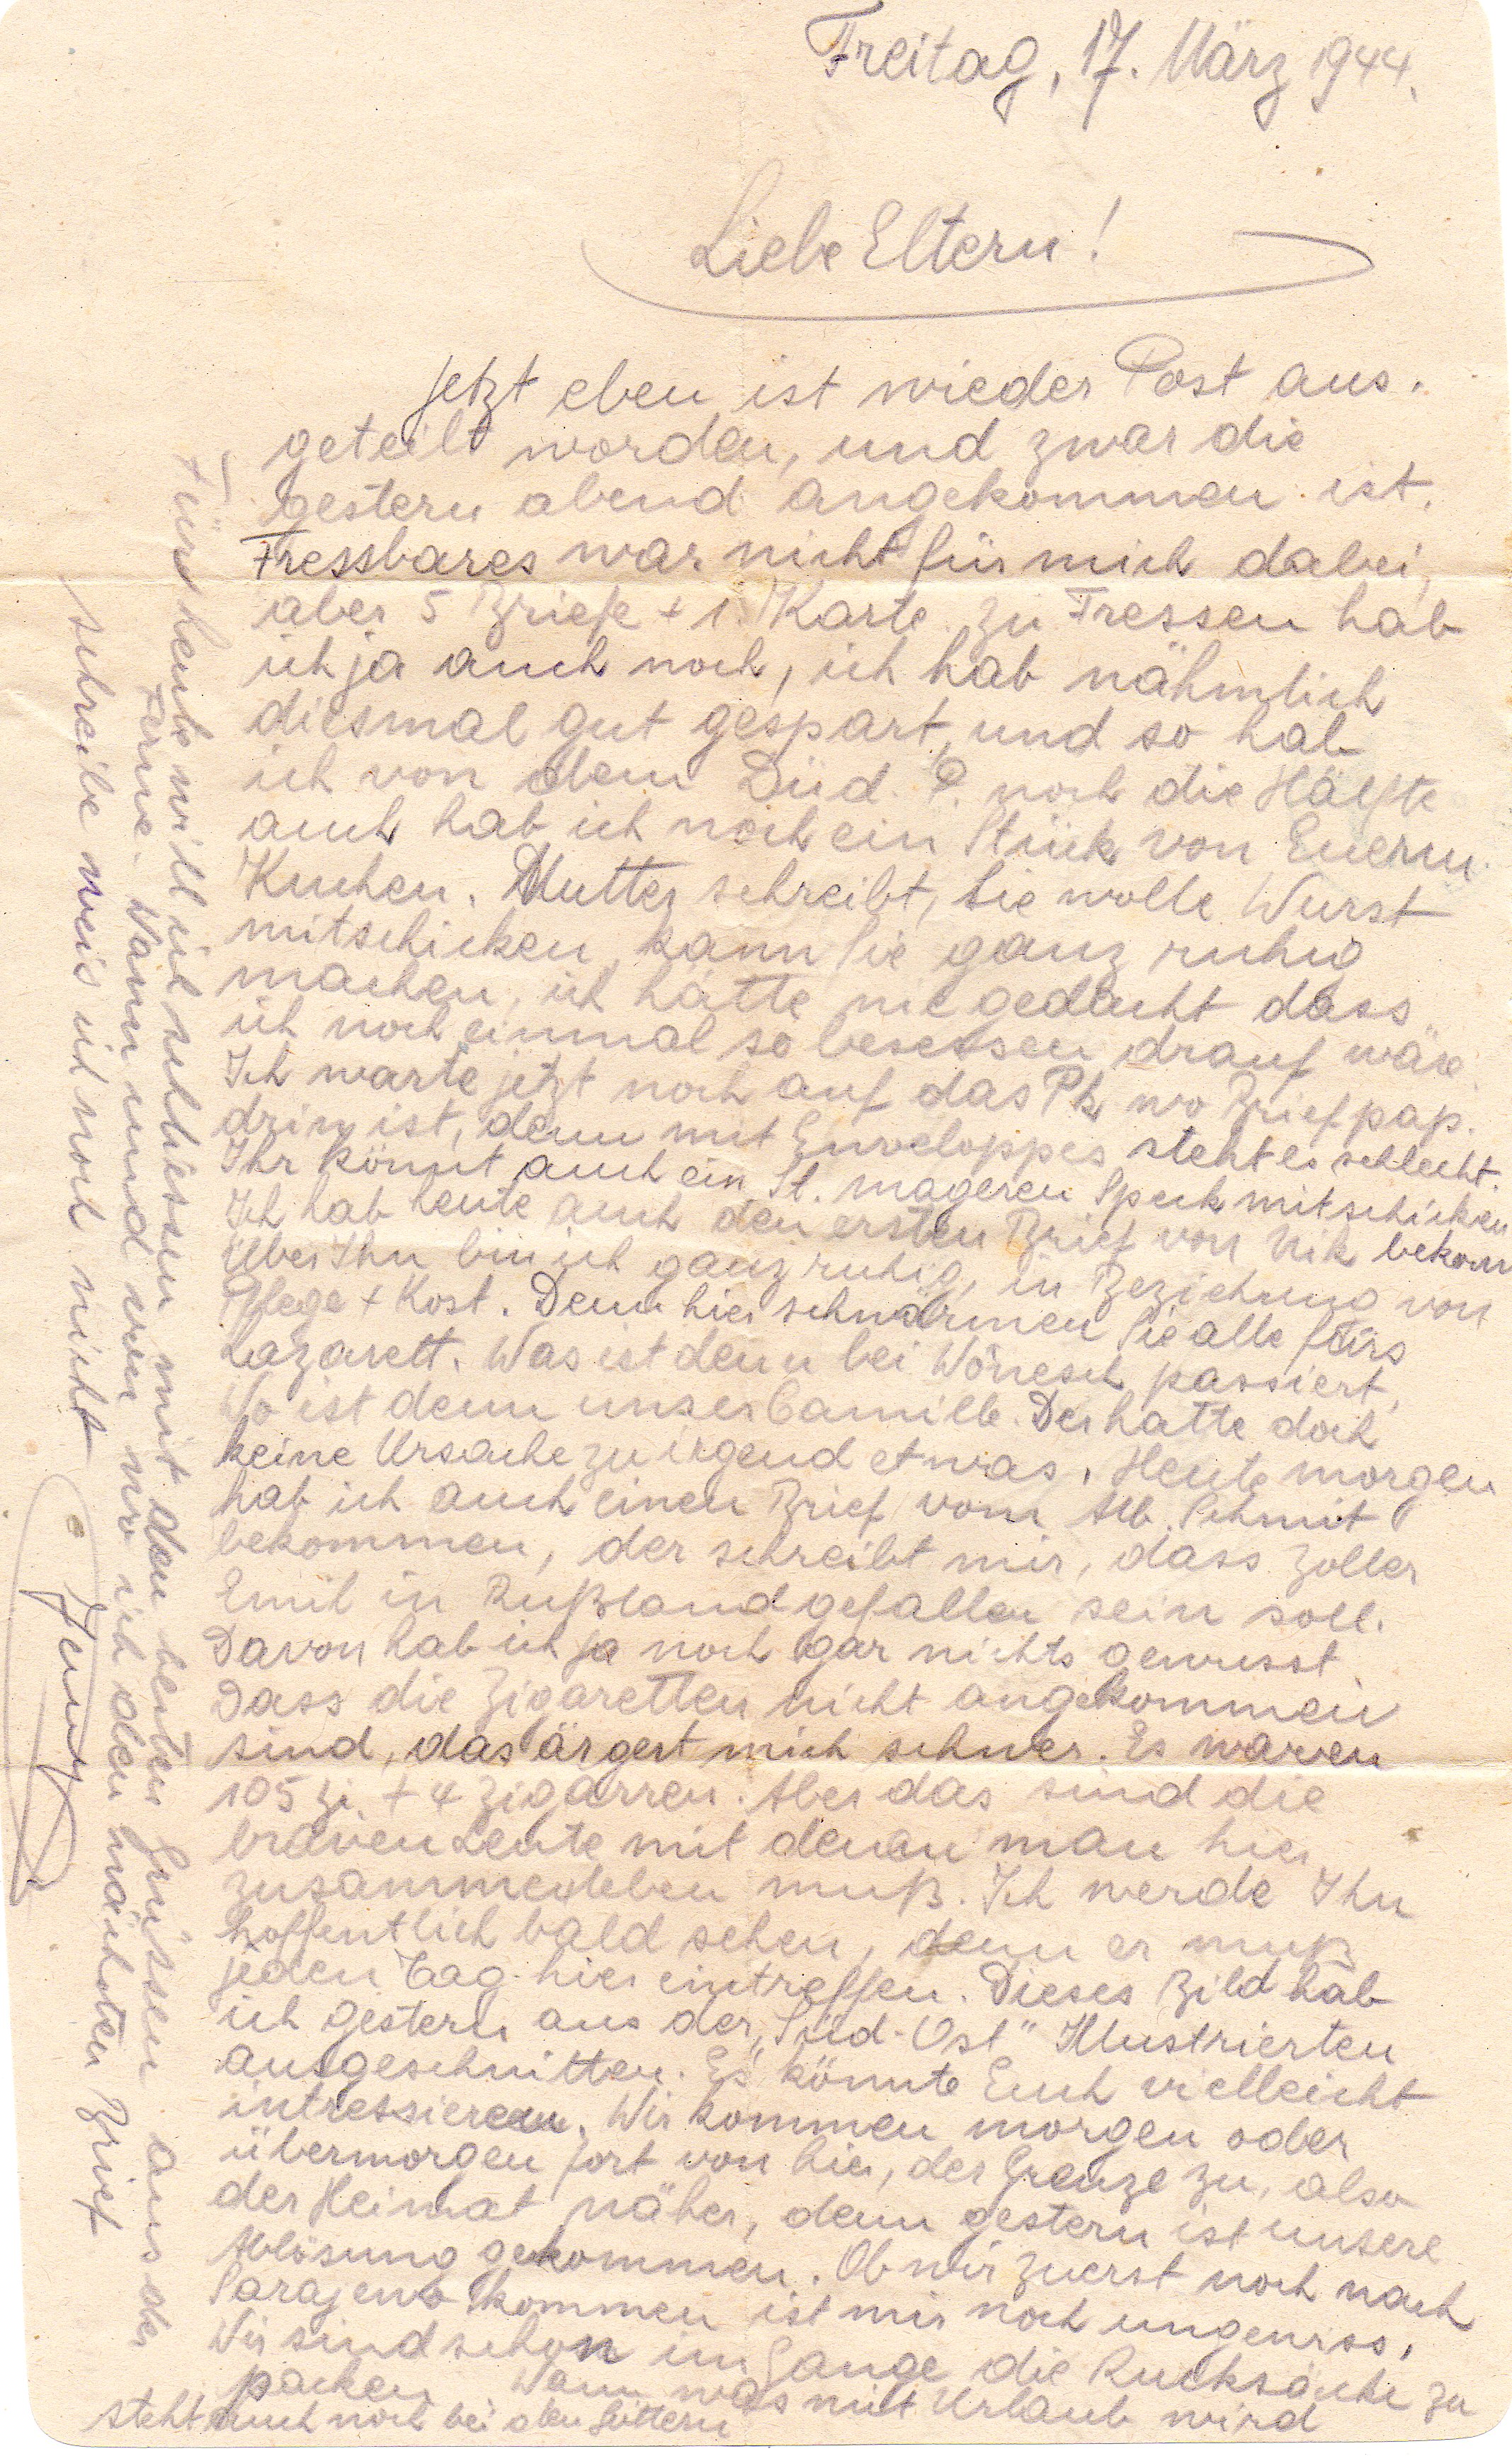 Freitag, 17. März 1944.
Liebe Eltern!
Jetzt eben ist wieder Post aus.
geteilt worden, und zwar die
gestern abend angekommen ist.
Fressbares war nicht für mich dabei,
aber 5 Briefe + 1 Karte. Zu Fressen hab
ich ja auch noch, ich hab nähmlich
diesmal gut gespart, und so hab
ich von dem Düd. P. noch die Hälfte
auch hab ich noch ein Stück von Euerm
Kuchen. Mutter schreibt, Sie wolle Wurst
mitschicken, kann Sie ganz ruhig
machen, ich hätte nie gedacht dass
ich noch einmal so besessen drauf wäre.
Ich warte jetzt noch auf das Pk wo Briefpap.
drin ist, denn mit Enveloppes steht es schlecht.
Ihr könnt auch ein St. mageren Speck mitschicken
Ich hab heute auch den ersten Brief von Nik bekom
Über Ihn bin ich ganz ruhig, in Beziehung von
Pflege + Kost. Denn hier schwärmen Sie alle fürs
Lazarett. Was ist denn bei Wönesch passiert,
Wo ist denn unser Camille. Der hatte doch
keine Ursache zu irgend etwas. Heute morgen
hab ich auch einen Brief vom Alb. Schmit
bekommen, der schreibt mir, dass Zoller
Emil in Rußland gefallen sein soll.
Davon hab ich ja noch gar nichts gewusst
Dass die Zigaretten nicht angekommen
sind, das ärgert mich schwer. Es waren
105 Zi. + 4 Zigarren. Aber das sind die
braven Leute mit denen man hier
zusammenleben muß. Ich werde Ihn
hoffentlich bald sehen, denn er muß
jeden Tag hier eintreffen. Dieses Bild hab
ich gestern aus der „Süd-Ost" Illustrierten
ausgeschnitten. Es könnte Euch vielleicht
intressieren. Wir kommen morgen oder
übermorgen fort von hier, der Grenze zu, also
der Heimat näher, denn gestern ist unsere
Ablösung gekommen. Ob wir zuerst noch nach
Sarajewo kommen ist mir noch ungewiss.
Wir sind schon im Gange die Rucksäcke zu
packen Wann was mit Urlaub wird
steht auch noch bei den Göttern
Fürs heute will ich schliessen mit den besten Grüssen aus der
Ferne. Wann und von wo ich den nächsten Brief
schreibe weis ich noch nicht